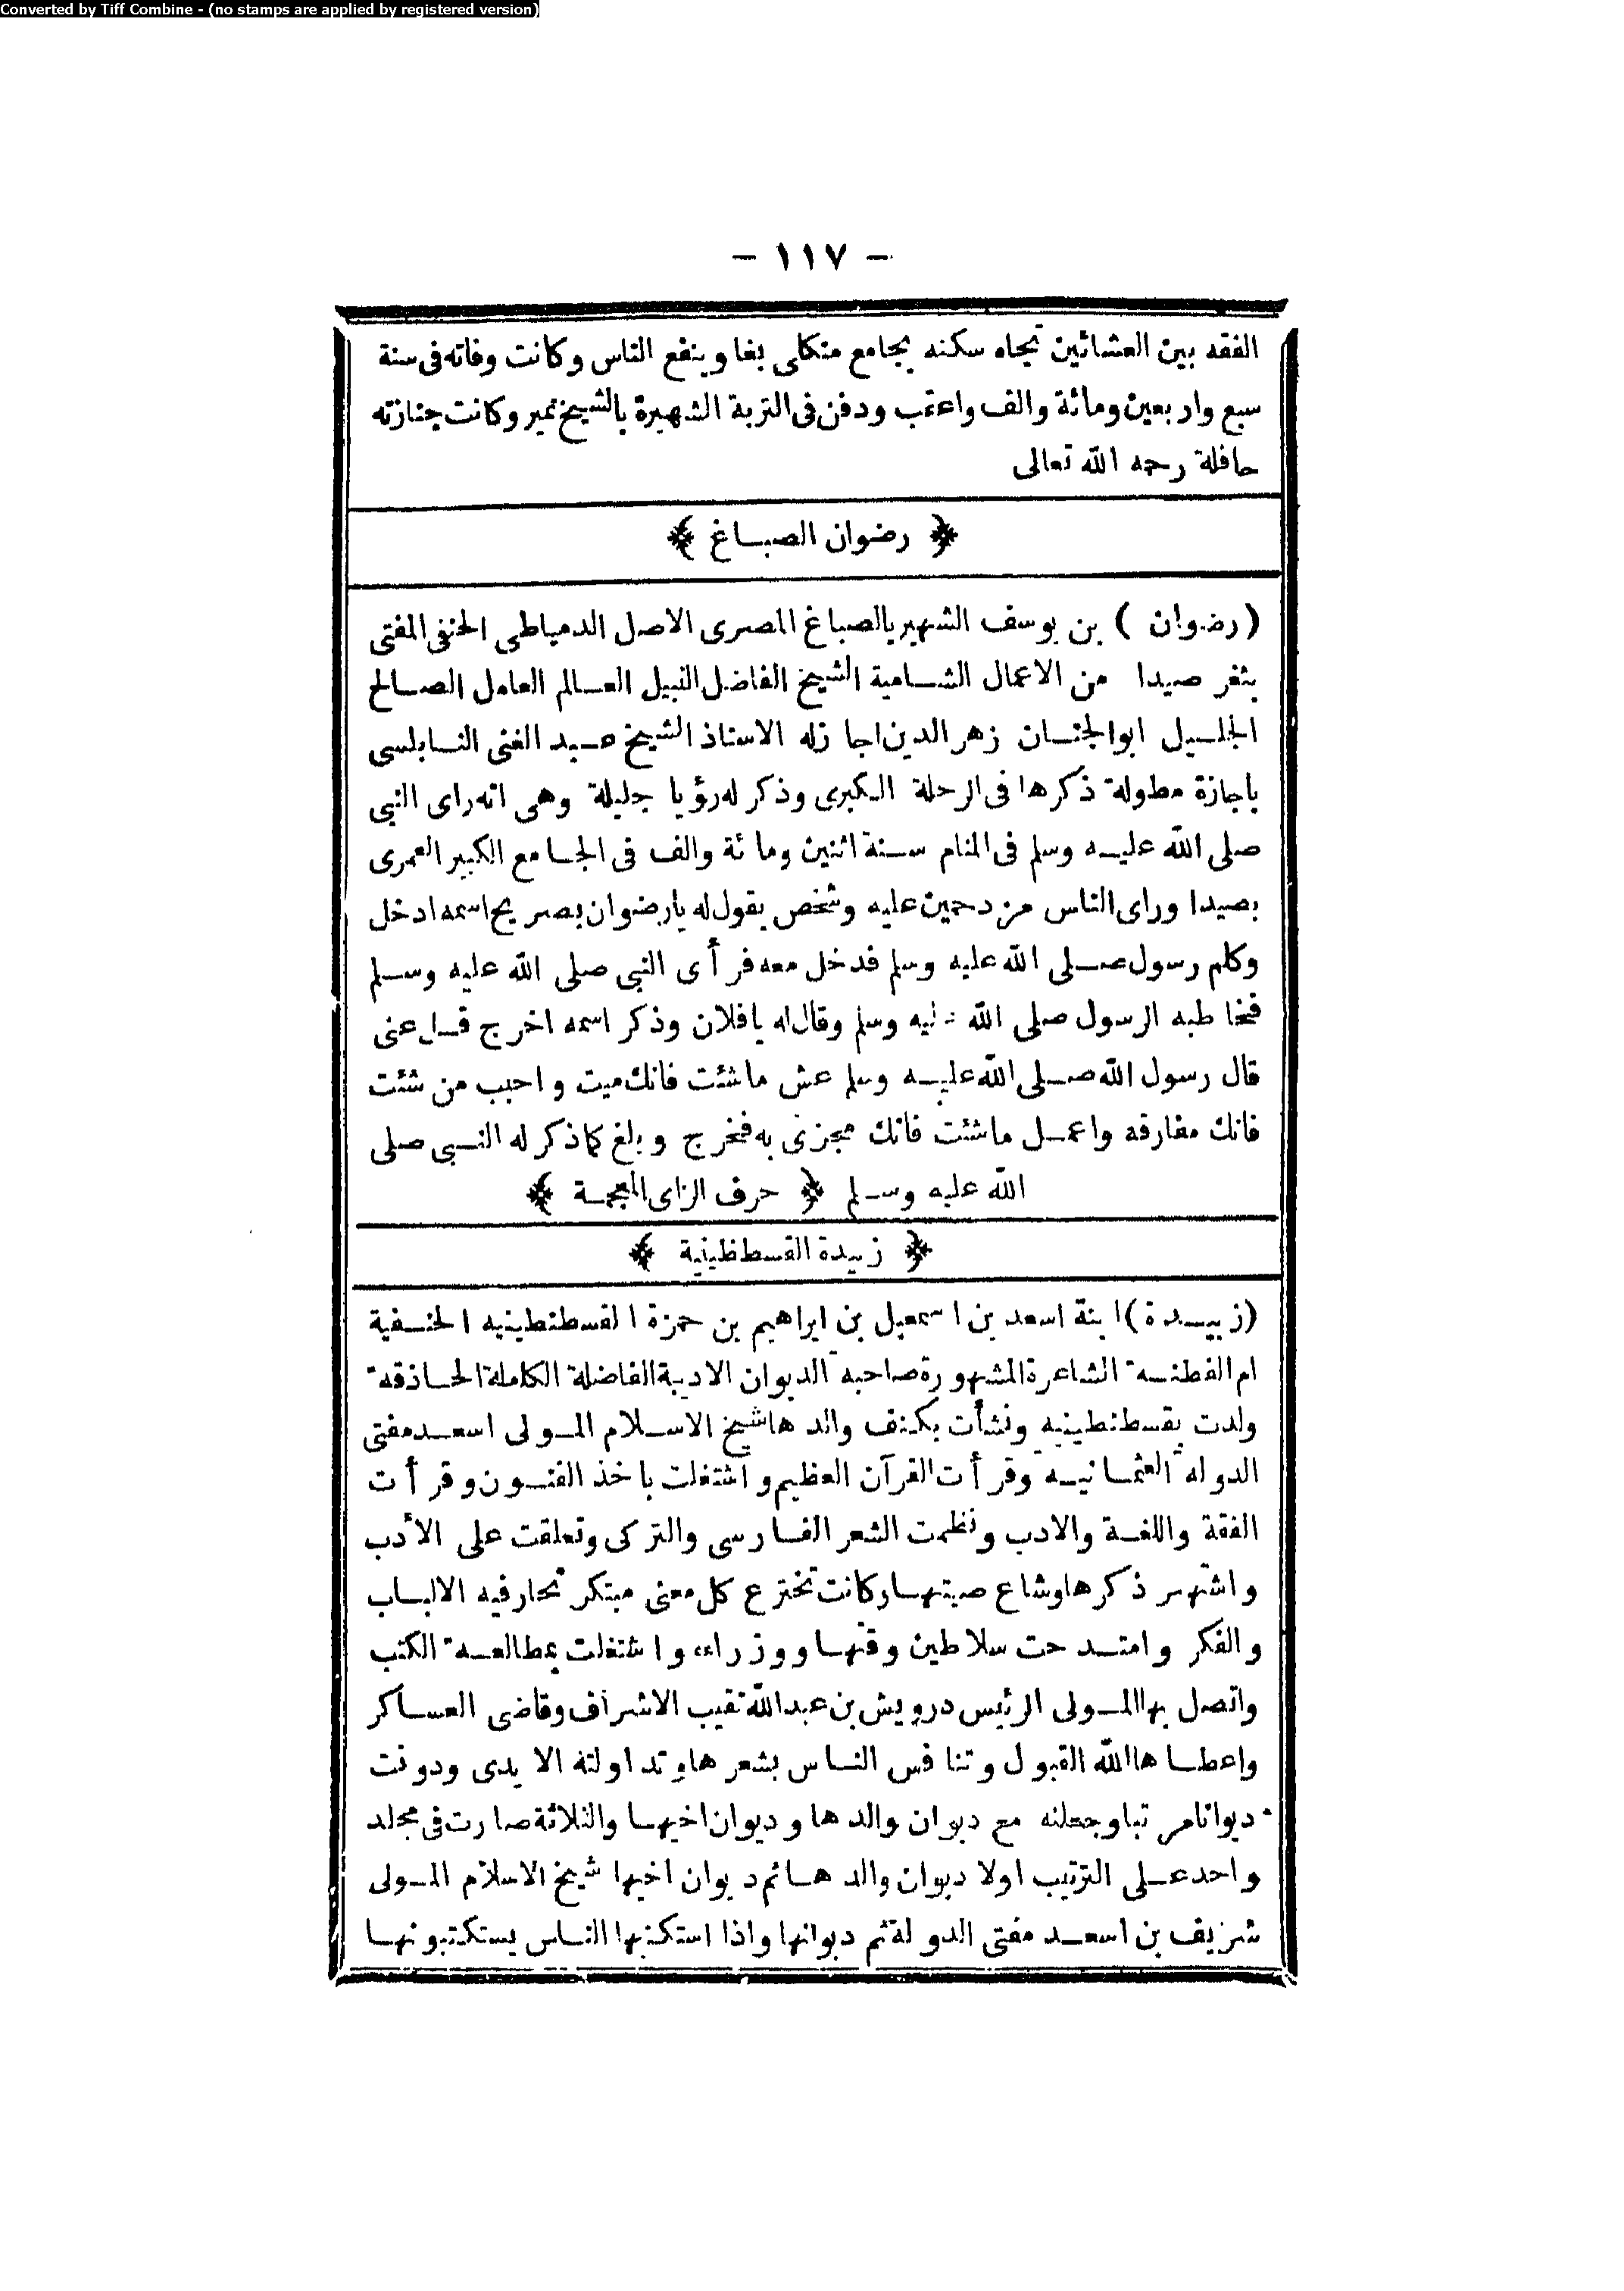 Converted by Tiff Combine - (no stamps are applied by registered version)
- ١١٧ -
الفقه بين العشائين تجاه سكنه بجامع منكلى بغا وينفع الناس وكانت وفاته فى سنة
سبع واربعين ومائة والف واعتقب ودفن فى التربة الشهيرة بالشيخ نمير وكانت جنازته
حافلة رحمه الله تعالى
﴿ رضوان الصباغ ﴾
( رضوان ) بن يوسف الشهير بالصباغ المصرى الاصل الدمياطى الحنفى المفتى
بثغر صيدا من الاعمال الشامية الشيخ الفاضل النبيل العالم العامل الصالح
الجليل ابوالجنان زهر الدين اجازله الاستاذ الشيخ عبد الغنى النابلسى
باجازة مطولة ذكرها فى الرحلة الكبرى وذكر له رؤيا جليلة وهى انه راى النبى
صلى الله عليه وسلم فى المنام سنة اثنين ومائة والف فى الجامع الكبير العمرى
بصيدا وراى الناس مزدحمين عليه وشخص يقول له يارضوان بصريح اسمه ادخل
وكلم رسول صلى الله عليه وسلم فدخل معه فرأى النبى صلى الله عليه وسلم
فخاطبه الرسول صلى الله عليه وسلم وقال له يافلان وذكر اسمه اخرج قل عنى
قال رسول الله صلى الله عليه وسلم عش ماشئت فانك ميت واحبب من شئت
فانك مفارقه واعمل ماشئت فانك مجزى به فخرج وبلغ كماذكر له النبى صلى
الله عليه وسلم ﴿ حرف الزاى المعجمة ﴾
﴿ زبيدة القسطظينية ﴾
(زبيدة) ابنة اسعد بن اسمعيل بن ابراهيم بن حمزة القسطنطينيه الحنفية
ام الفطنة الشاعرة المشهورة صاحبة الديوان الاديبة الفاضلة الكاملة الحاذقة
ولدت بقسطنطينية ونشأت بكنف والدها شيخ الاسلام المولى اسعد مفتى
الدولة العثمانية وقرأت القرآن العظيم واشتغلت باخذ الفنون وقرأت
الفقة واللغة والادب ونظمت الشعر الفارسى والتركى وتعلقت على الأدب
واشتهر ذكرها وشاع صيتها وكانت تخترع كل معنى مبتكر تحار فيه الالباب
والفكر وامتدحت سلاطين وقتها ووزراءه واشتغلت بمطالعة الكتب
واتصل بها المولى الرئيس درويش بن عبدالله نقيب الاشراف وقاضى العساكر
واعطاها الله القبول وتنافس الناس بشعرها وتداولته الايدى ودونت
ديوانا مرتبا وجعلته مع ديوان والدها وديوان اخيها والثلاثة صارت فى مجلد
واحد على الترتيب اولا ديوان والدها ثم ديوان اخيها شيخ الاسلام المولى
شريف بن اسعد مفتى الدولة ثم ديوانها واذا استكتبها الناس يستكتبونها